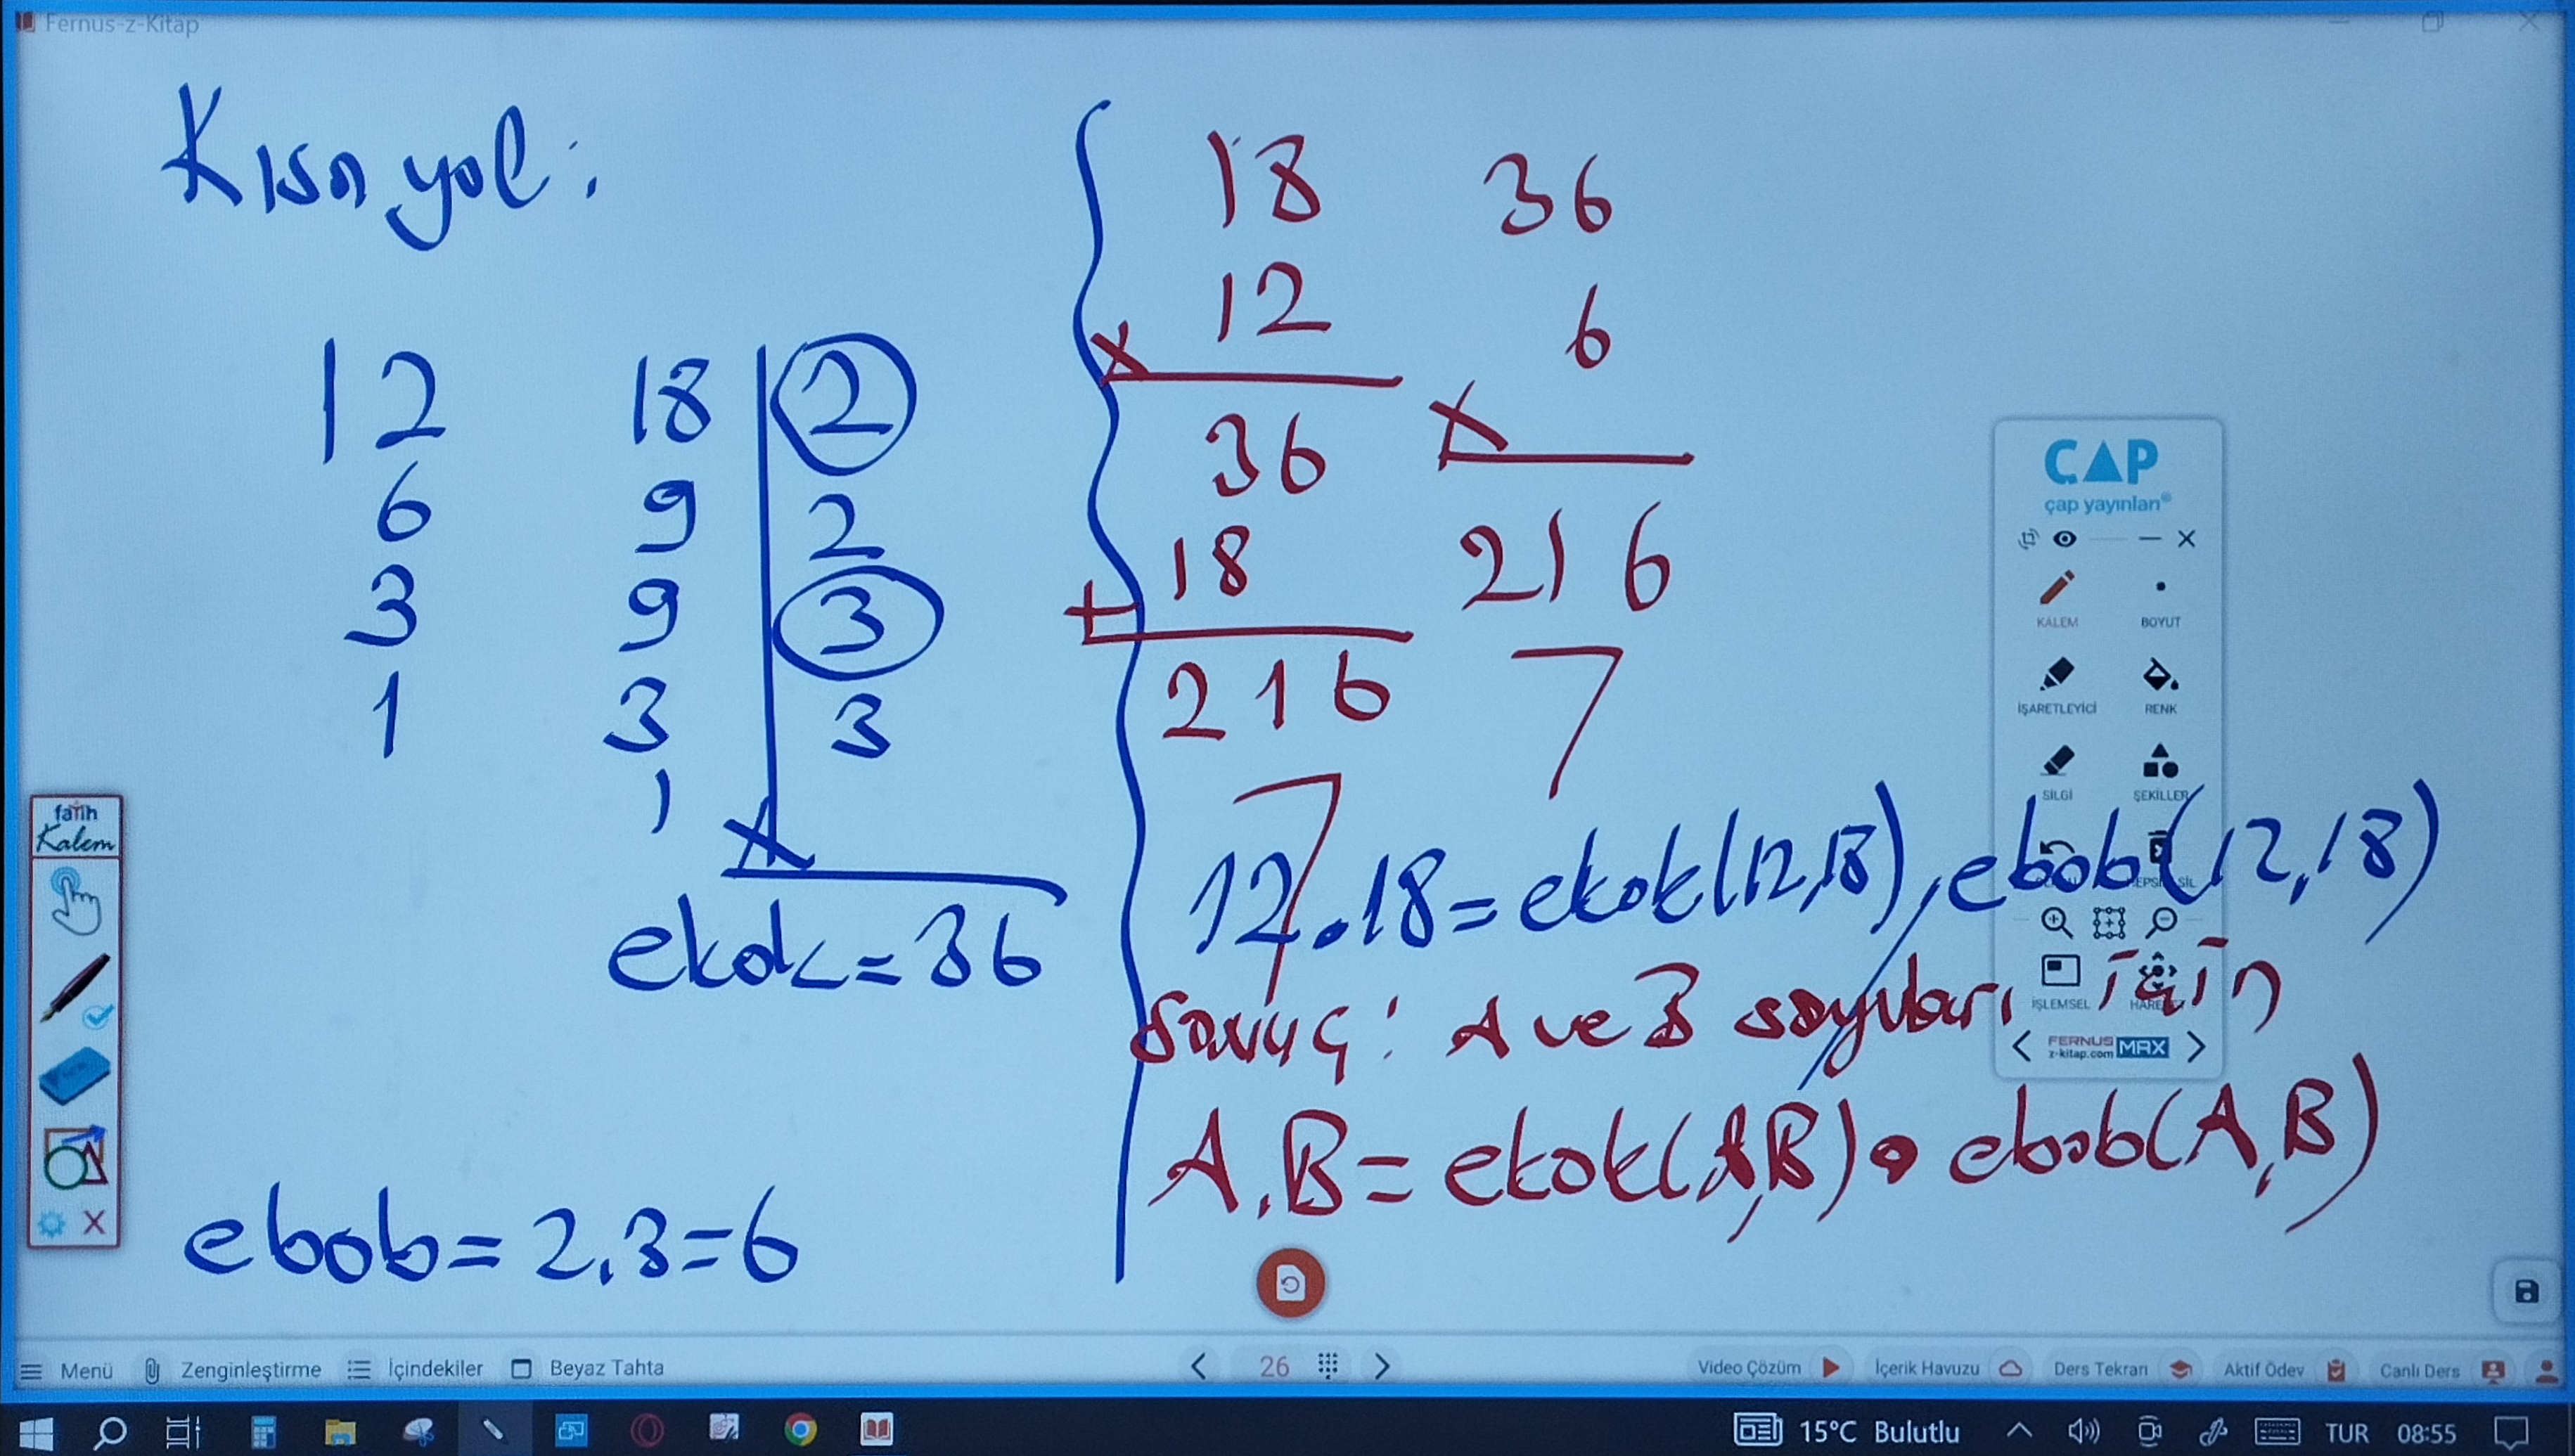 Fernus-z-Kitap
Kısa yol:
12 18 2
6 9 2
3 9 3
1 3 3
1
x
ekok=36
ebob=2.3=6
18
12
x
36
18
+
216
36
6
x
216
12.18=ekok(12,18).ebob(12,18)
Sonuç: A ve B sayıları için
A.B=ekok(A,B).ebob(A,B)
ÇAP
çap yayınları®
KALEM BOYUT
İŞARETLEYİCİ RENK
SİLGİ ŞEKİLLER
İŞLEMSEL
FERNUS
z-kitap.com MAX
fatih
Kalem
Menü Zenginleştirme İçindekiler Beyaz Tahta 26 Video Çözüm İçerik Havuzu Ders Tekrarı Aktif Ödev Canlı Ders
15°C Bulutlu TUR 08:55